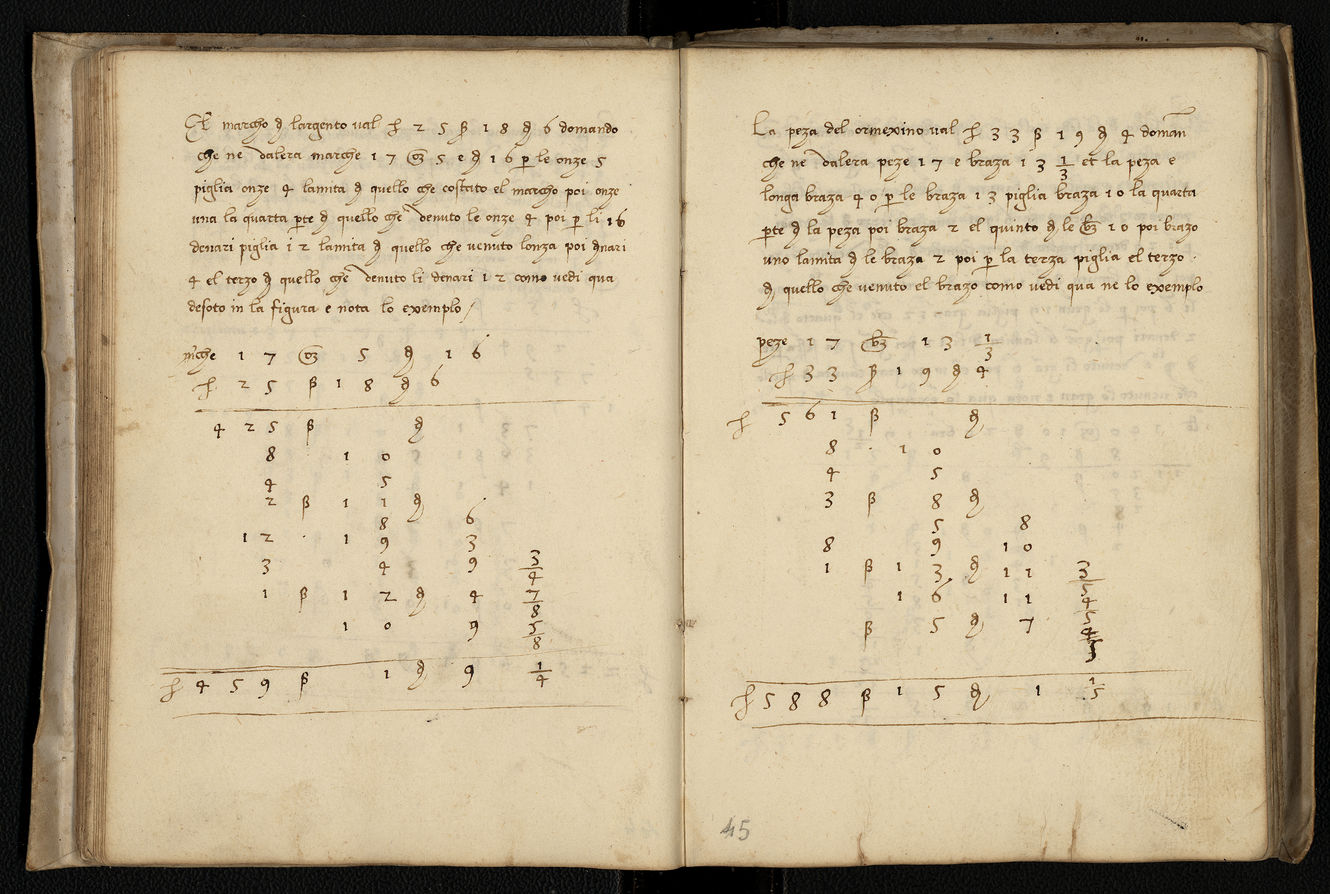 El marcho d largento val £ 2 5 ß 1 8 d 6 domando
che ne valera marche 1 7 oz 5 e d 1 6 p le onze 5
piglia onze 4 lamita d quello che costato el marcho poi onze
una la quarta pte d quello che venuto le onze 4 poi p li 16
denari piglia 1 2 lamita d quello che venuto lonza poi dnari
4 el terzo d quello che venuto li denari 1 2 como vedi qua
desoto in la figura e nota lo exemplo /
mche 1 7 oz 5 d 1 6
£ 2 5 ß 1 8 d 6
4 2 5 ß d
8 1 0
4 5
2 ß 1 1 d
8 6
1 2 1 9 3
3 4 9 3/4
1 ß 1 2 d 4 7/8
1 0 9 5/8
£ 4 5 9 ß 1 d 9 1/4
La peza del ormexino val £ 3 3 ß 1 9 d 4 doman
che ne valera peze 1 7 e braza 1 3 1/3 et la peza e
longa braza 4 0 p le braza 1 3 piglia braza 1 0 la quarta
pte d la peza poi braza 2 el quinto d le bz 1 0 poi brazo
uno lamita d le braza 2 poi p la terza piglia el terzo
d quello che venuto el brazo como vedi qua ne lo exemplo
peze 1 7 bz 1 3 1/3
£ 3 3 ß 1 9 d 4
£ 5 6 1 ß d
8 1 0
4 5
3 ß 8 d
5 8
8 9 1 0
1 ß 1 3 d 1 1 3/5
1 6 1 1 4/5
ß 5 d 7
£ 5 8 8 ß 1 5 d 1 1/5
45